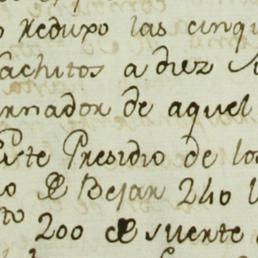 Reduxo las cinqu
achitos a diez
rnador de aquel
Este Presidio de los
o de Bejar 240
to 200 de suerte